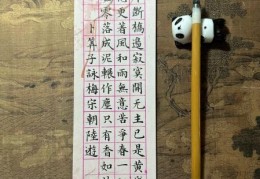 斷橋邊寂寞開无主已是黃
更著風和雨無意苦爭春一
零落成泥輾作塵只有香如
卜算子詠梅宋朝陸遊